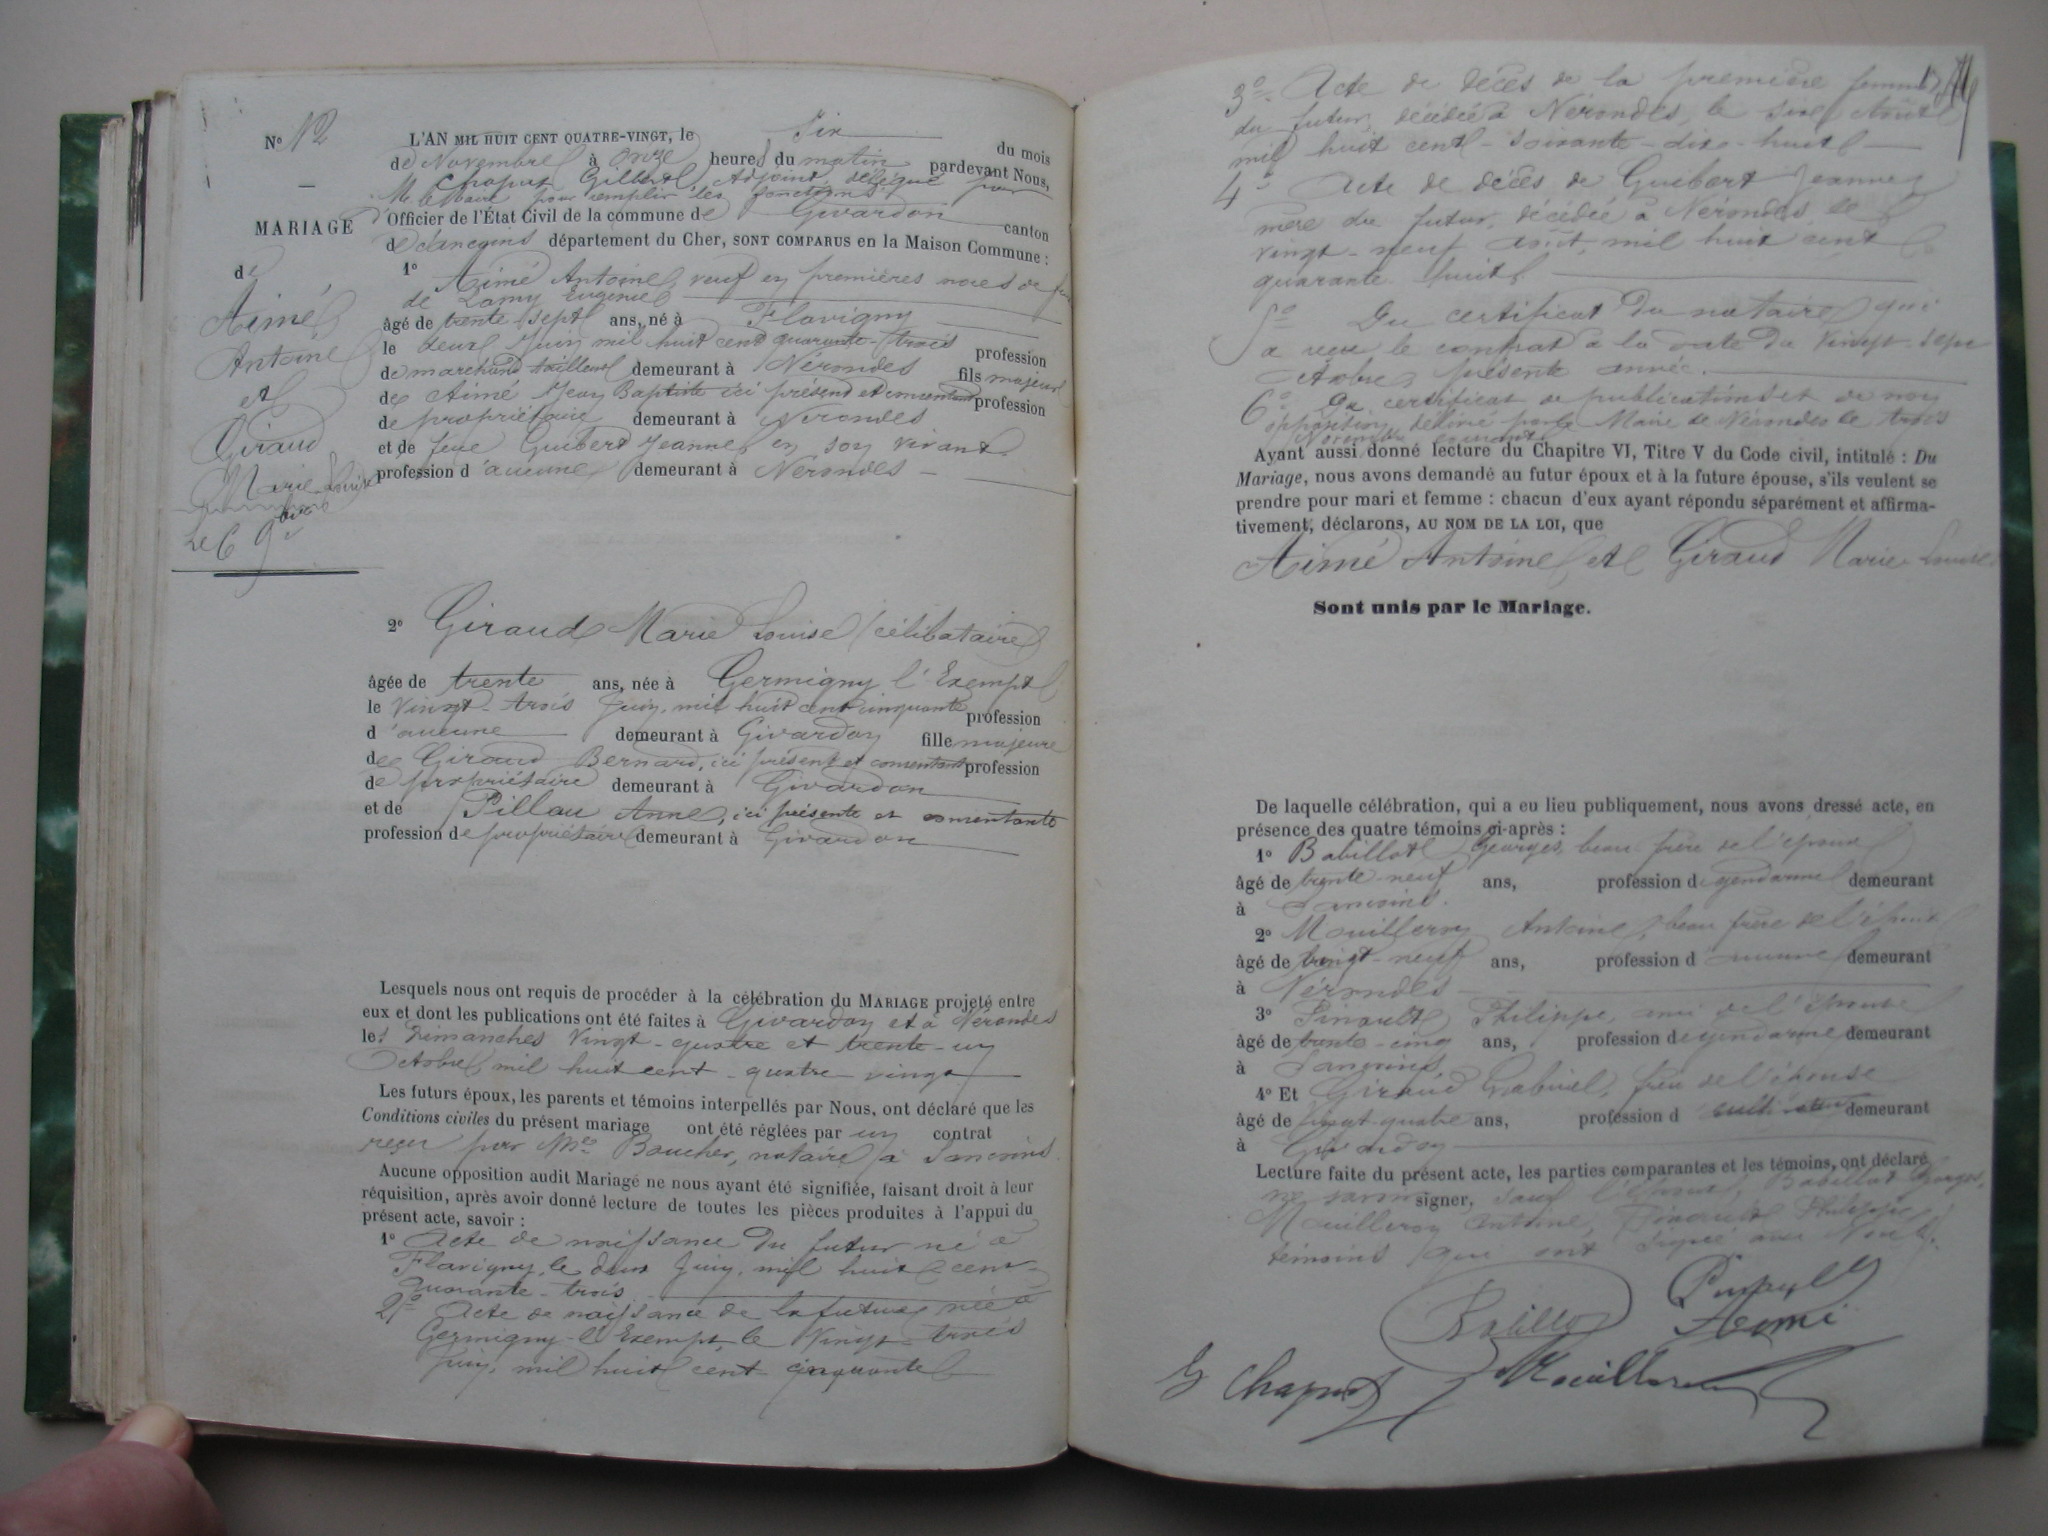 N° 12
MARIAGE
de
Aimé
Antoine
et
Giraud
Marie Louise
Le 6 9bre
L'AN MIL HUIT CENT QUATRE-VINGT, le Six du mois
de Novembre à onze heures du matin pardevant Nous,
Chaput Gilbert, Adjoint, délégué par
M. le Maire pour remplir les fonctions
Officier de l'État Civil de la commune de Givardon canton
de Sancoins département du Cher, SONT COMPARUS en la Maison Commune :
1° Aimé Antoine, veuf en premières noces de feue
de Lamy Eugénie
âgé de trente-sept ans, né à Flavigny
le deux Juin mil huit cent quarante-trois profession
de marchand tailleur demeurant à Nérondes fils majeur
de Aimé Jean Baptiste ici présent et consentant profession
de propriétaire demeurant à Nérondes
et de feue Guibert Jeanne, en son vivant
profession d'aucune demeurant à Nérondes
2° Giraud Marie Louise (célibataire)
âgée de trente ans, née à Germigny l'Exempt
le Vingt-trois Juin, mil huit cent cinquante profession
d'aucune demeurant à Givardon fille majeure
de Giraud Bernard, ici présent et consentant profession
de propriétaire demeurant à Givardon
et de Pillau Anne, ici présente et consentante
profession de propriétaire demeurant à Givardon
Lesquels nous ont requis de procéder à la célébration du MARIAGE projeté entre
eux et dont les publications ont été faites à Givardon et à Nérondes
les Dimanches Vingt-quatre et trente-un
Octobre mil huit cent quatre-vingt
Les futurs époux, les parents et témoins interpellés par Nous, ont déclaré que les
Conditions civiles du présent mariage ont été réglées par un contrat
reçu par Me Boucher, notaire à Sancoins.
Aucune opposition audit Mariage ne nous ayant été signifiée, faisant droit à leur
réquisition, après avoir donné lecture de toutes les pièces produites à l'appui du
présent acte, savoir :
1° Acte de naissance du futur né à
Flavigny, le deux Juin, mil huit cent
quarante-trois
2° Acte de naissance de la future née à
Germigny-l'Exempt, le Vingt-trois
Juin, mil huit cent cinquante
3° Acte de décès de la première femme
du futur, décédée à Nérondes, le six Août
mil huit cent soixante-dix-huit
4° Acte de décès de Guibert Jeanne
mère du futur, décédée à Nérondes le
vingt-neuf août, mil huit cent
quarante huit
5° Du certificat du notaire qui
a reçu le contrat à la date du Vingt-sept
Octobre, présente année.
6° Du certificat de publications et de non
opposition délivré par le Maire de Nérondes le trois
Novembre courant
Ayant aussi donné lecture du Chapitre VI, Titre V du Code civil, intitulé : Du
Mariage, nous avons demandé au futur époux et à la future épouse, s'ils veulent se
prendre pour mari et femme : chacun d'eux ayant répondu séparément et affirma-
tivement, déclarons, AU NOM DE LA LOI, que
Aimé Antoine et Giraud Marie Louise
Sont unis par le Mariage.
De laquelle célébration, qui a eu lieu publiquement, nous avons dressé acte, en
présence des quatre témoins ci-après :
1° Babillot Georges, beau frère de l'époux
âgé de trente-neuf ans, profession de gendarme demeurant
à Sancoins.
2° Mouilleron Antoine, beau frère de l'époux
âgé de vingt-neuf ans, profession d'aucune demeurant
à Nérondes
3° Pinault Philippe, ami de l'épouse
âgé de trente-cinq ans, profession de gendarme demeurant
à Sancoins,
4° Et Giraud Gabriel, frère de l'épouse
âgé de Vingt-quatre ans, profession d cultivateur demeurant
à Givardon
Lecture faite du présent acte, les parties comparantes et les témoins, ont déclaré
ne savoir signer, sauf l'époux, Babillot Georges,
Mouilleron Antoine, Pinault Philippe
témoins qui ont signé avec Nous.
Babillot
Aimé
G Chaput
Mouilleron